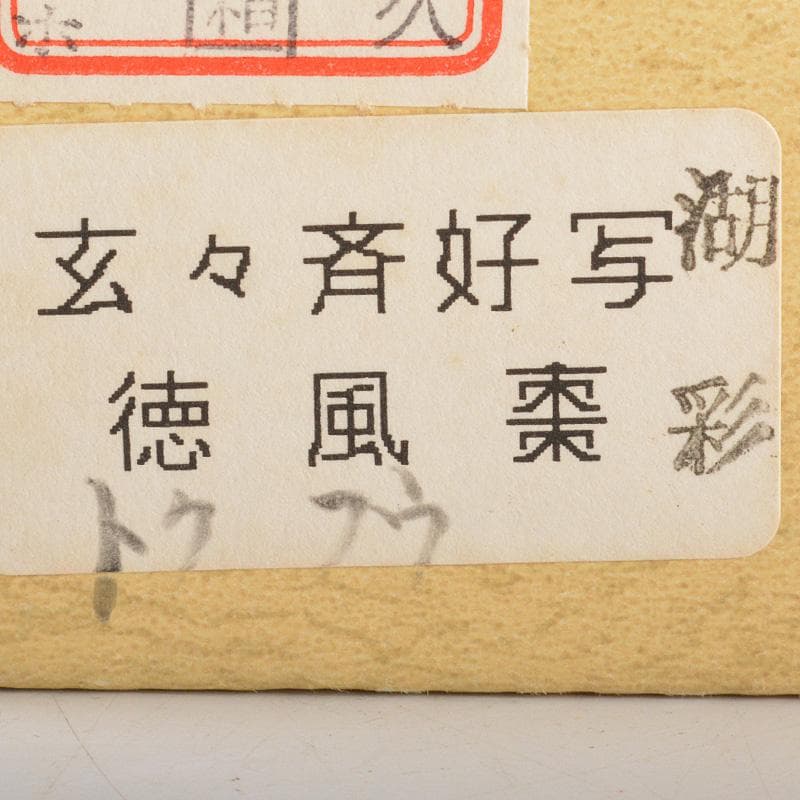 箱
久
玄々斉好写
徳風棗
トク フウ
湖彩